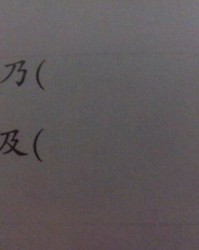 乃(
及(